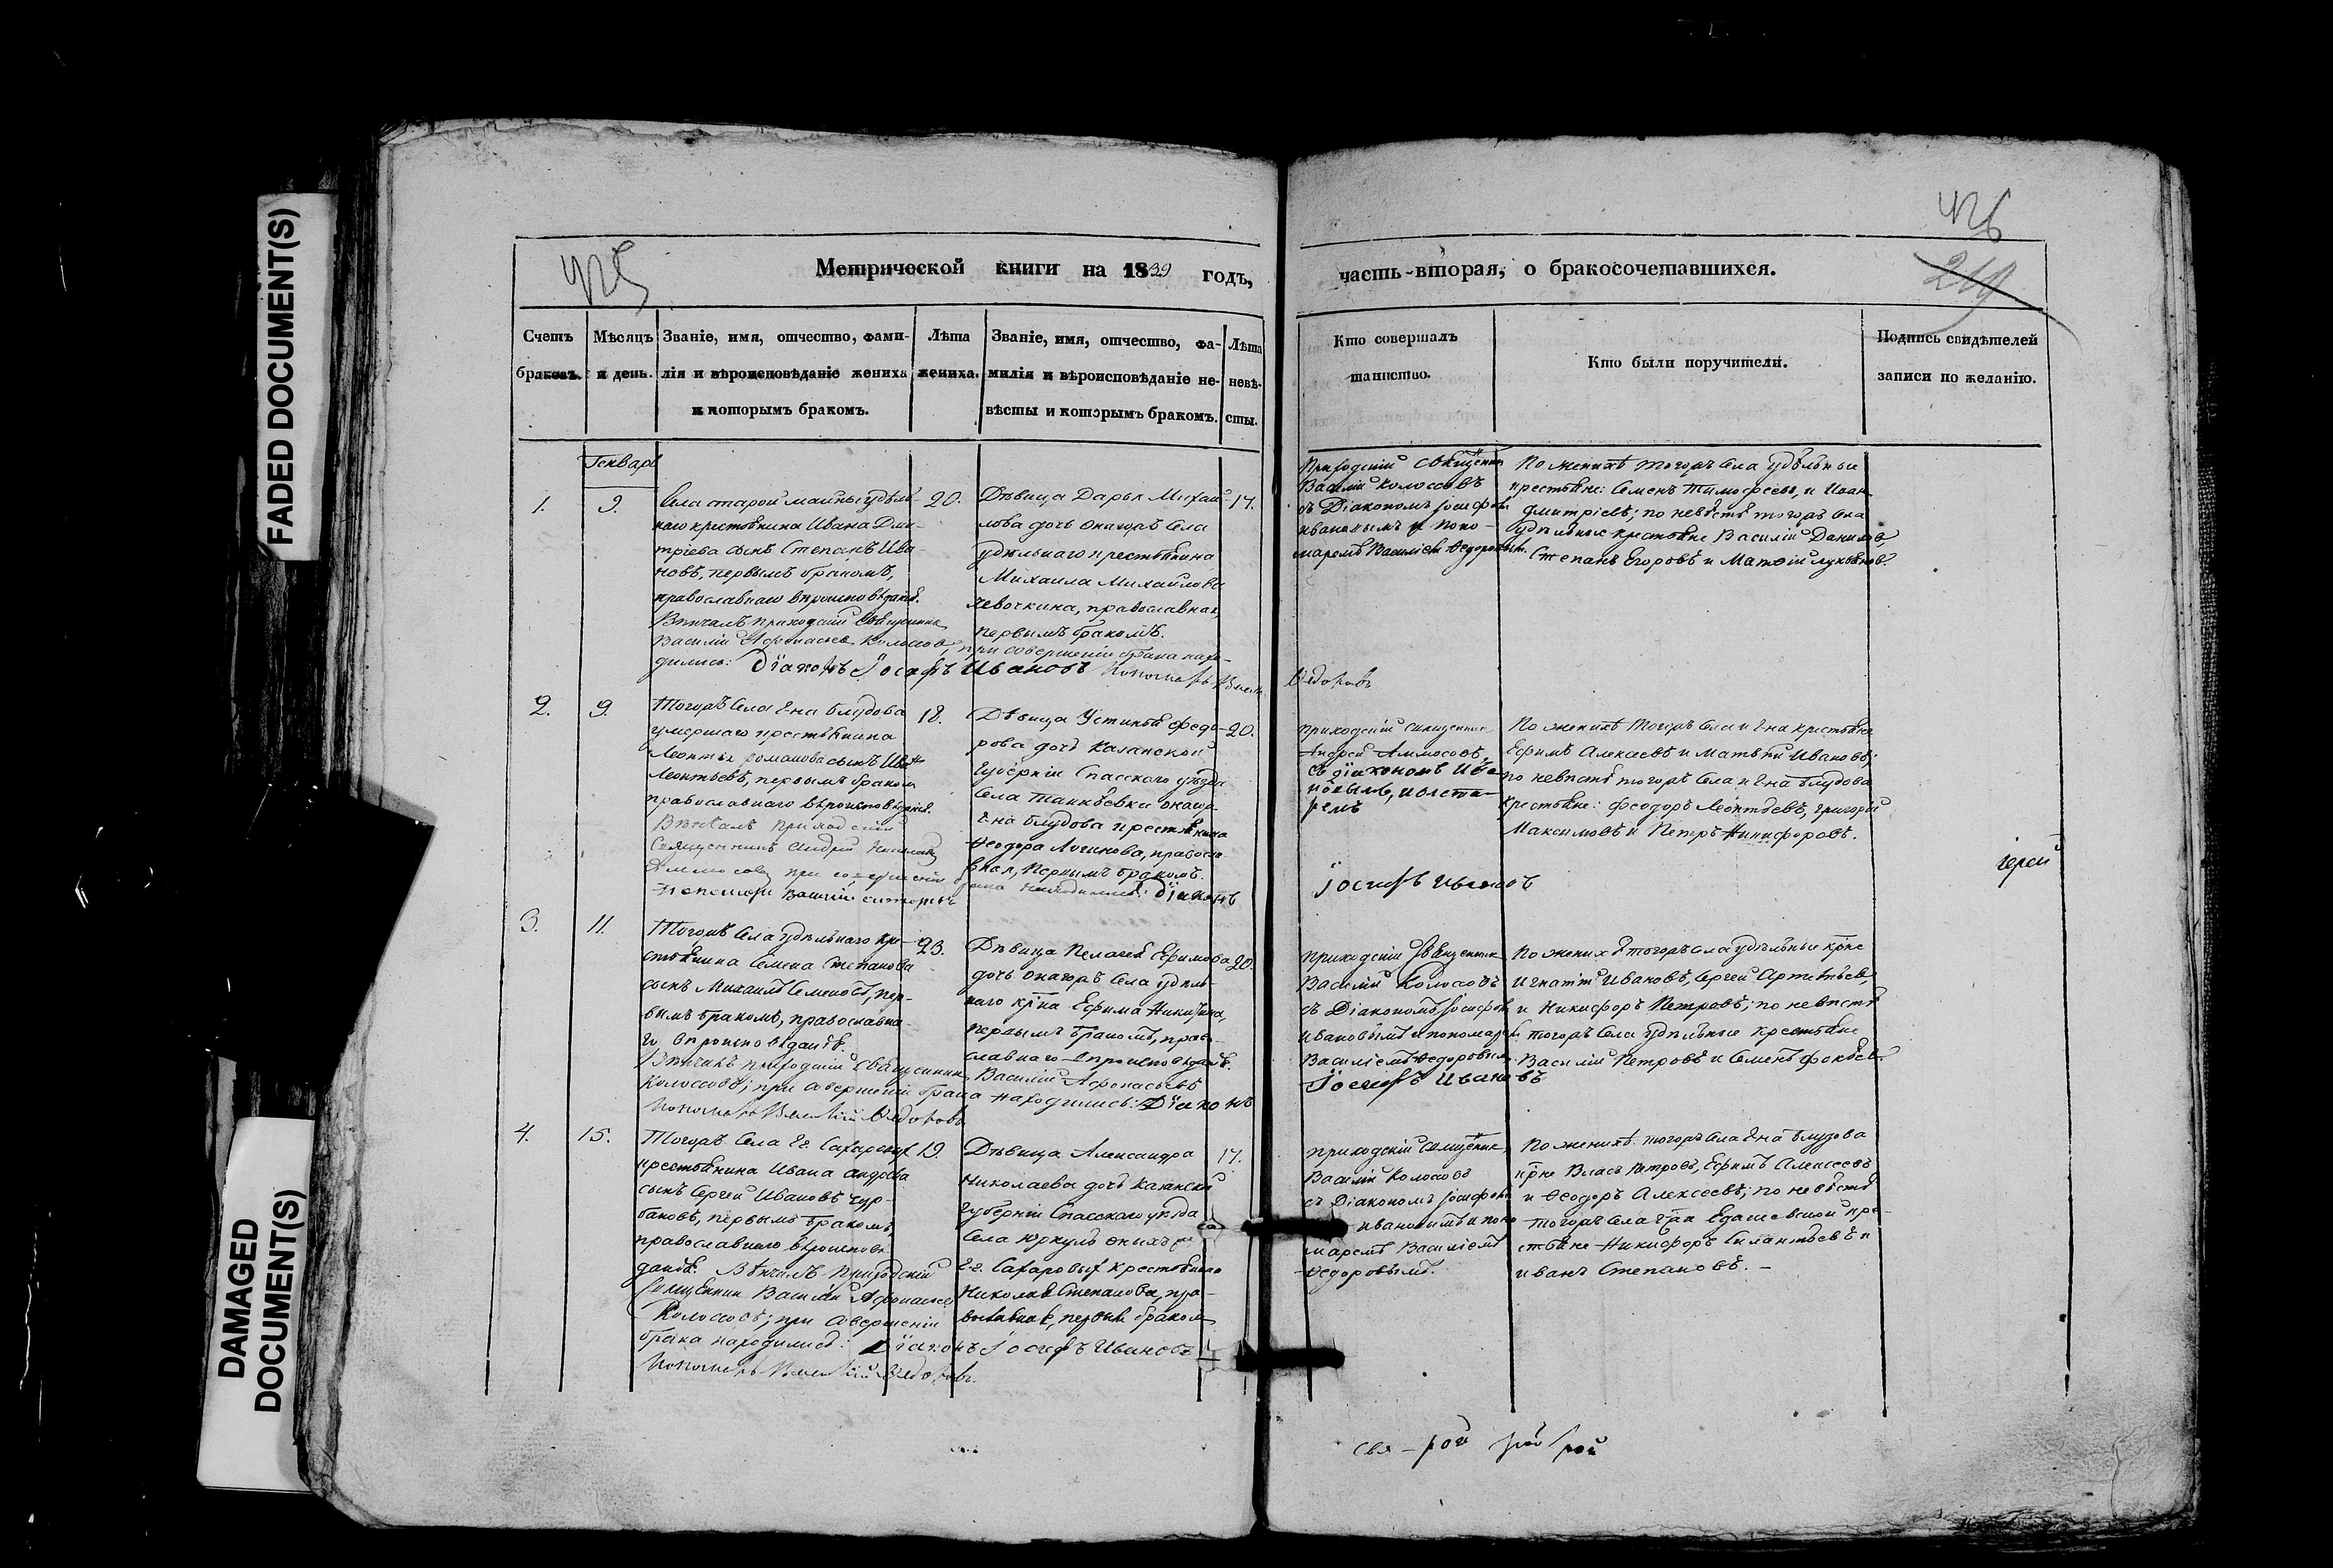 FADED DOCUMENT(S)
DAMAGED
DOCUMENT(S)
425
426
219
Метрической книги на 1839 годъ,
часть-вторая, о бракосочетавшихся.
Счетъ
браковъ.
Мѣсяцъ
и день.
Званіе, имя, отчество, фами-
лія и вѣроисповѣданіе жениха
и которымъ бракомъ.
Лѣта
жениха.
Званіе, имя, отчество, фа-
милія и вѣроисповѣданіе не-
вѣсты и которымъ бракомъ.
Лѣта
невѣ-
сты.
Кто совершалъ
таинство.
Кто были поручители.
Подпись свидѣтелей
записи по желанію.
Генварь
1.
9.
Села старой маины удѣль-
наго крестьянина Ивана Дми-
тріева сынъ Степанъ Ива
новъ, первымъ бракомъ,
православнаго вѣроисповѣданія.
Вѣнчалъ приходскій священникъ
Василій Афонасьевъ Колосовъ, при совершеніи брака нахо-
дились: Діаконъ Іосифъ Ивановъ Пономарь
Ѳедоровъ
20.
Дѣвица Дарья Михаи-
лова дочь онагожъ села
удѣльнаго крестьянина
Михаила Михайлова
Левочкина, православная,
первымъ бракомъ.
17.
Приходскій священникъ
Василій Колосовъ
съ Діакономъ Іосифомъ
Ивановымъ и поно-
маремъ Василіемъ Ѳедоровымъ.
По женихѣ тогожъ села удѣльные
крестьяне: Семенъ Тимофеевъ, и Иванъ
Дмитріевъ; по невѣстѣ тогожъ села
удѣльные крестьяне Василій Даниловъ,
Степанъ Егоровъ и Матвій Лукьяновъ.
2.
9.
Тогожъ села г-на Блудова
умершаго крестьянина
Леонтья Романова сынъ Иванъ
Леонтьевъ, первымъ бракомъ
православнаго вѣроисповѣданія.
Вѣнчалъ приходскій
Священникъ Андрей
при совершеніи брака находились: Діаконъ
Пономарь Василій
18.
Дѣвица Устинья Федо-
рова дочь Казанской
Губерніи Спасскаго уѣзда
села Танкѣевки онаго
г-на Блудова крестьянина
Ѳеодора Логинова, правосла
вная, первымъ бракомъ.
20.
приходскій священникъ
Андрей
съ діакономъ Ива
новымъ,
Іосифъ Ивановъ
По женихѣ тогожъ села и г-на крестьяне
Ефимъ Алексѣевъ и Матвѣй Ивановъ;
по невѣстѣ тогожъ села и г-на Блудова
крестьяне: Феодоръ Леонтьевъ, Григорій
Максимовъ и Петръ Никифоровъ.
іерей
3.
11.
Тогожъ села удѣльнаго кре-
стьянина Семена Степанова
сынъ Михаилъ Семеновъ, пер-
вымъ бракомъ, православна-
го вѣроисповѣданія.
Вѣнчалъ приходскій Священникъ Василій Афонасьевъ
Колосовъ; при совершеніи брака находились: Діаконъ
Іосифъ Ивановъ
Пономарь Василій Ѳедоровъ
23.
Дѣвица Пелагея Ефимова
дочь онагожъ села удѣль-
наго кр-на Ефима Никитина,
первымъ бракомъ, право-
славнаго вѣроисповѣданія.
20.
приходскій священникъ
Василій Колосовъ
съ Діакономъ Іосифомъ
Ивановымъ и пономаремъ
Василіемъ Ѳедоровымъ
По женихѣ тогожъ села удѣльные кр-не
Игнатій Ивановъ, Сергей Артемьевъ,
и Никифоръ Петровъ; по невѣстѣ
тогожъ села удѣльные крестьяне
Василій Петровъ и Семенъ Фокѣевъ
4.
15.
Тогожъ села г.г. Сахаровыхъ
крестьянина Ивана Андреева
сынъ Сергей Ивановъ Чур-
бановъ, первымъ бракомъ,
православнаго вѣроиспове
данія. Вѣнчалъ приходскій
священникъ Василій Афонасьевъ
Колосовъ; при совершеніи
брака находились: Діаконъ Іосифъ Ивановъ
Пономарь Василій Ѳедоровъ.
19.
Дѣвица Александра
Николаева дочь Казанской
Губерніи Спасскаго уѣзда
села Юркуль оныхъ же
г.г. Сахаровыхъ крестьянина
Николая Степанова, пра-
вославная, первымъ бракомъ
17.
приходскій священникъ
Василій Колосовъ
съ Діакономъ Іосифомъ
Ивановымъ и поно
маремъ Василіемъ
Ѳедоровымъ.
По женихѣ тогожъ села г-на Блудова
кр-не Власъ Петровъ, Ефимъ Алексеевъ
и Ѳеодоръ Алексеевъ; по невѣстѣ
тогожъ села кре-
стьяне Никифоръ Силантьевъ и
Иванъ Степановъ.